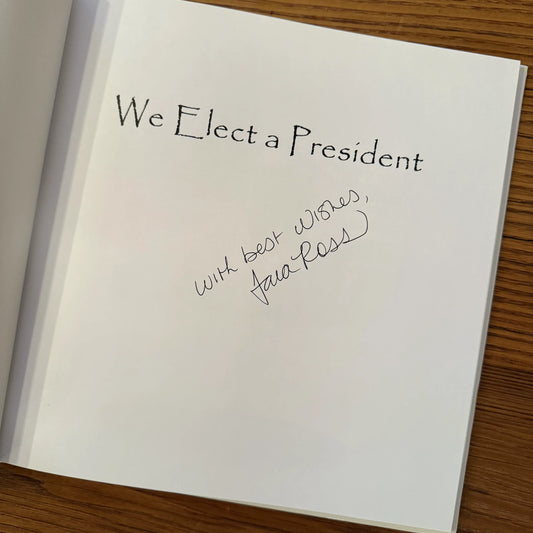 We Elect a President
with best wishes,
Tara Ross